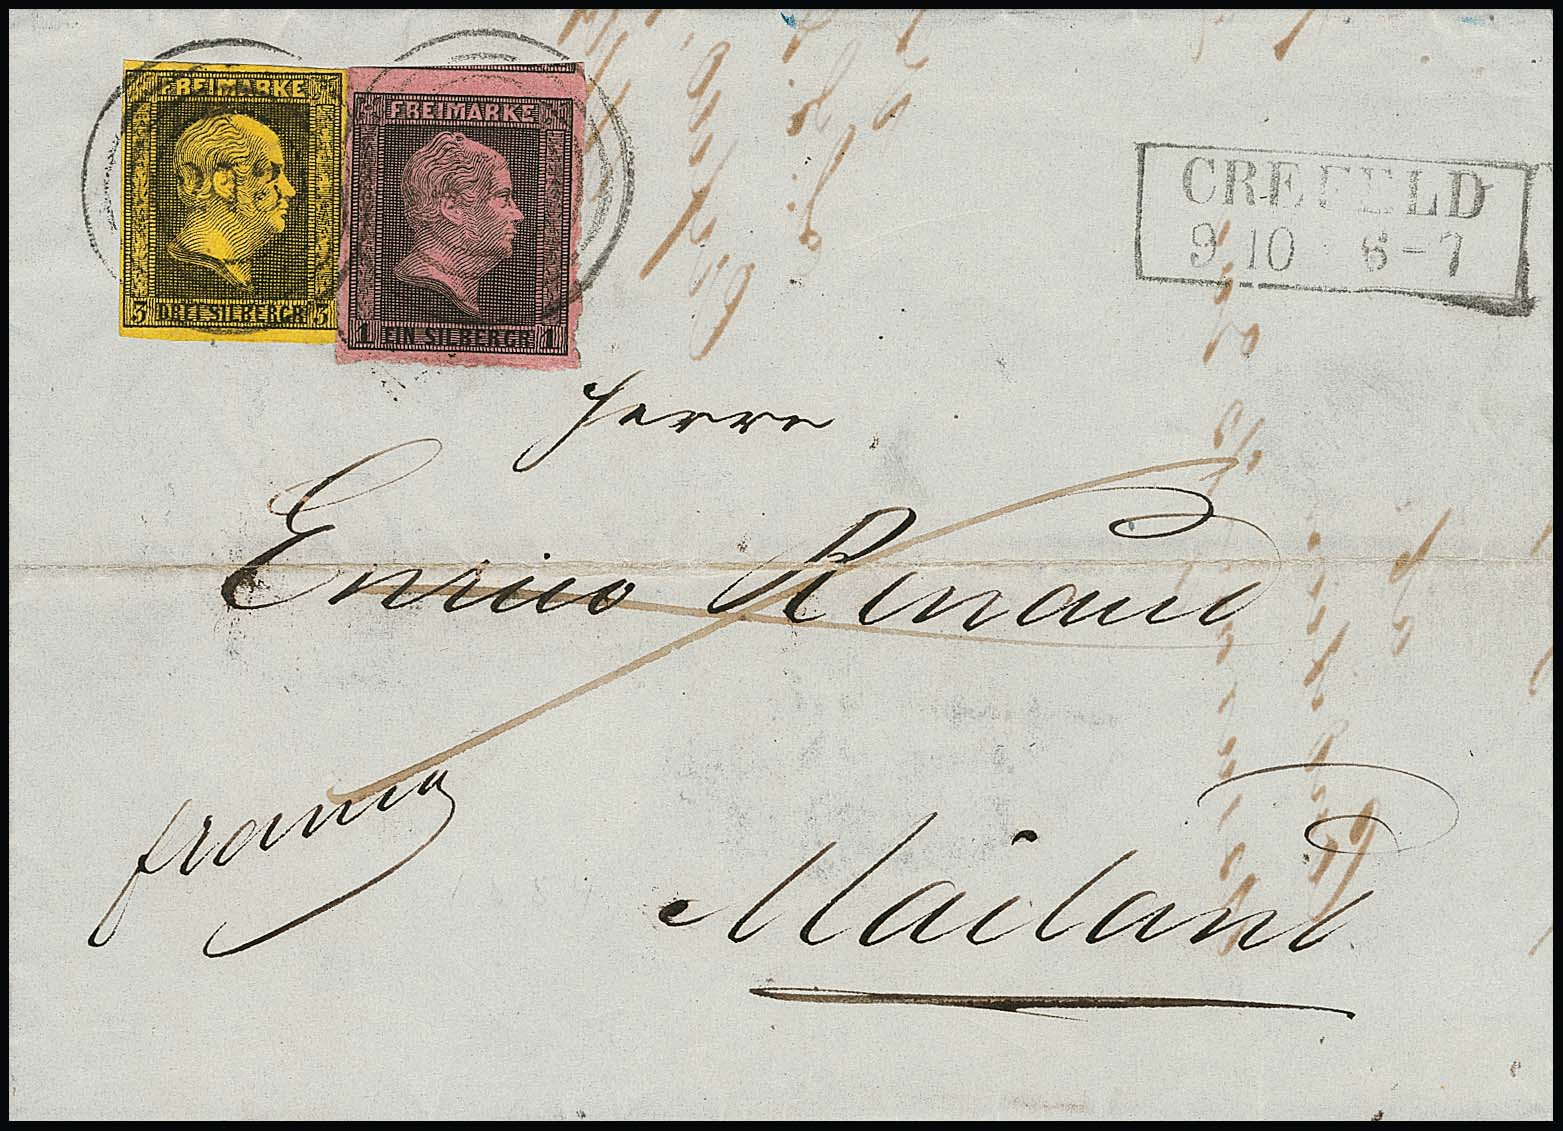 FREIMARKE
3 DREI SILBERGR 3
FREIMARKE
1 EIN SILBERGR 1
CREFELD
9 10 6-7
Herrn
Enrico Renaud
franco
Mailand